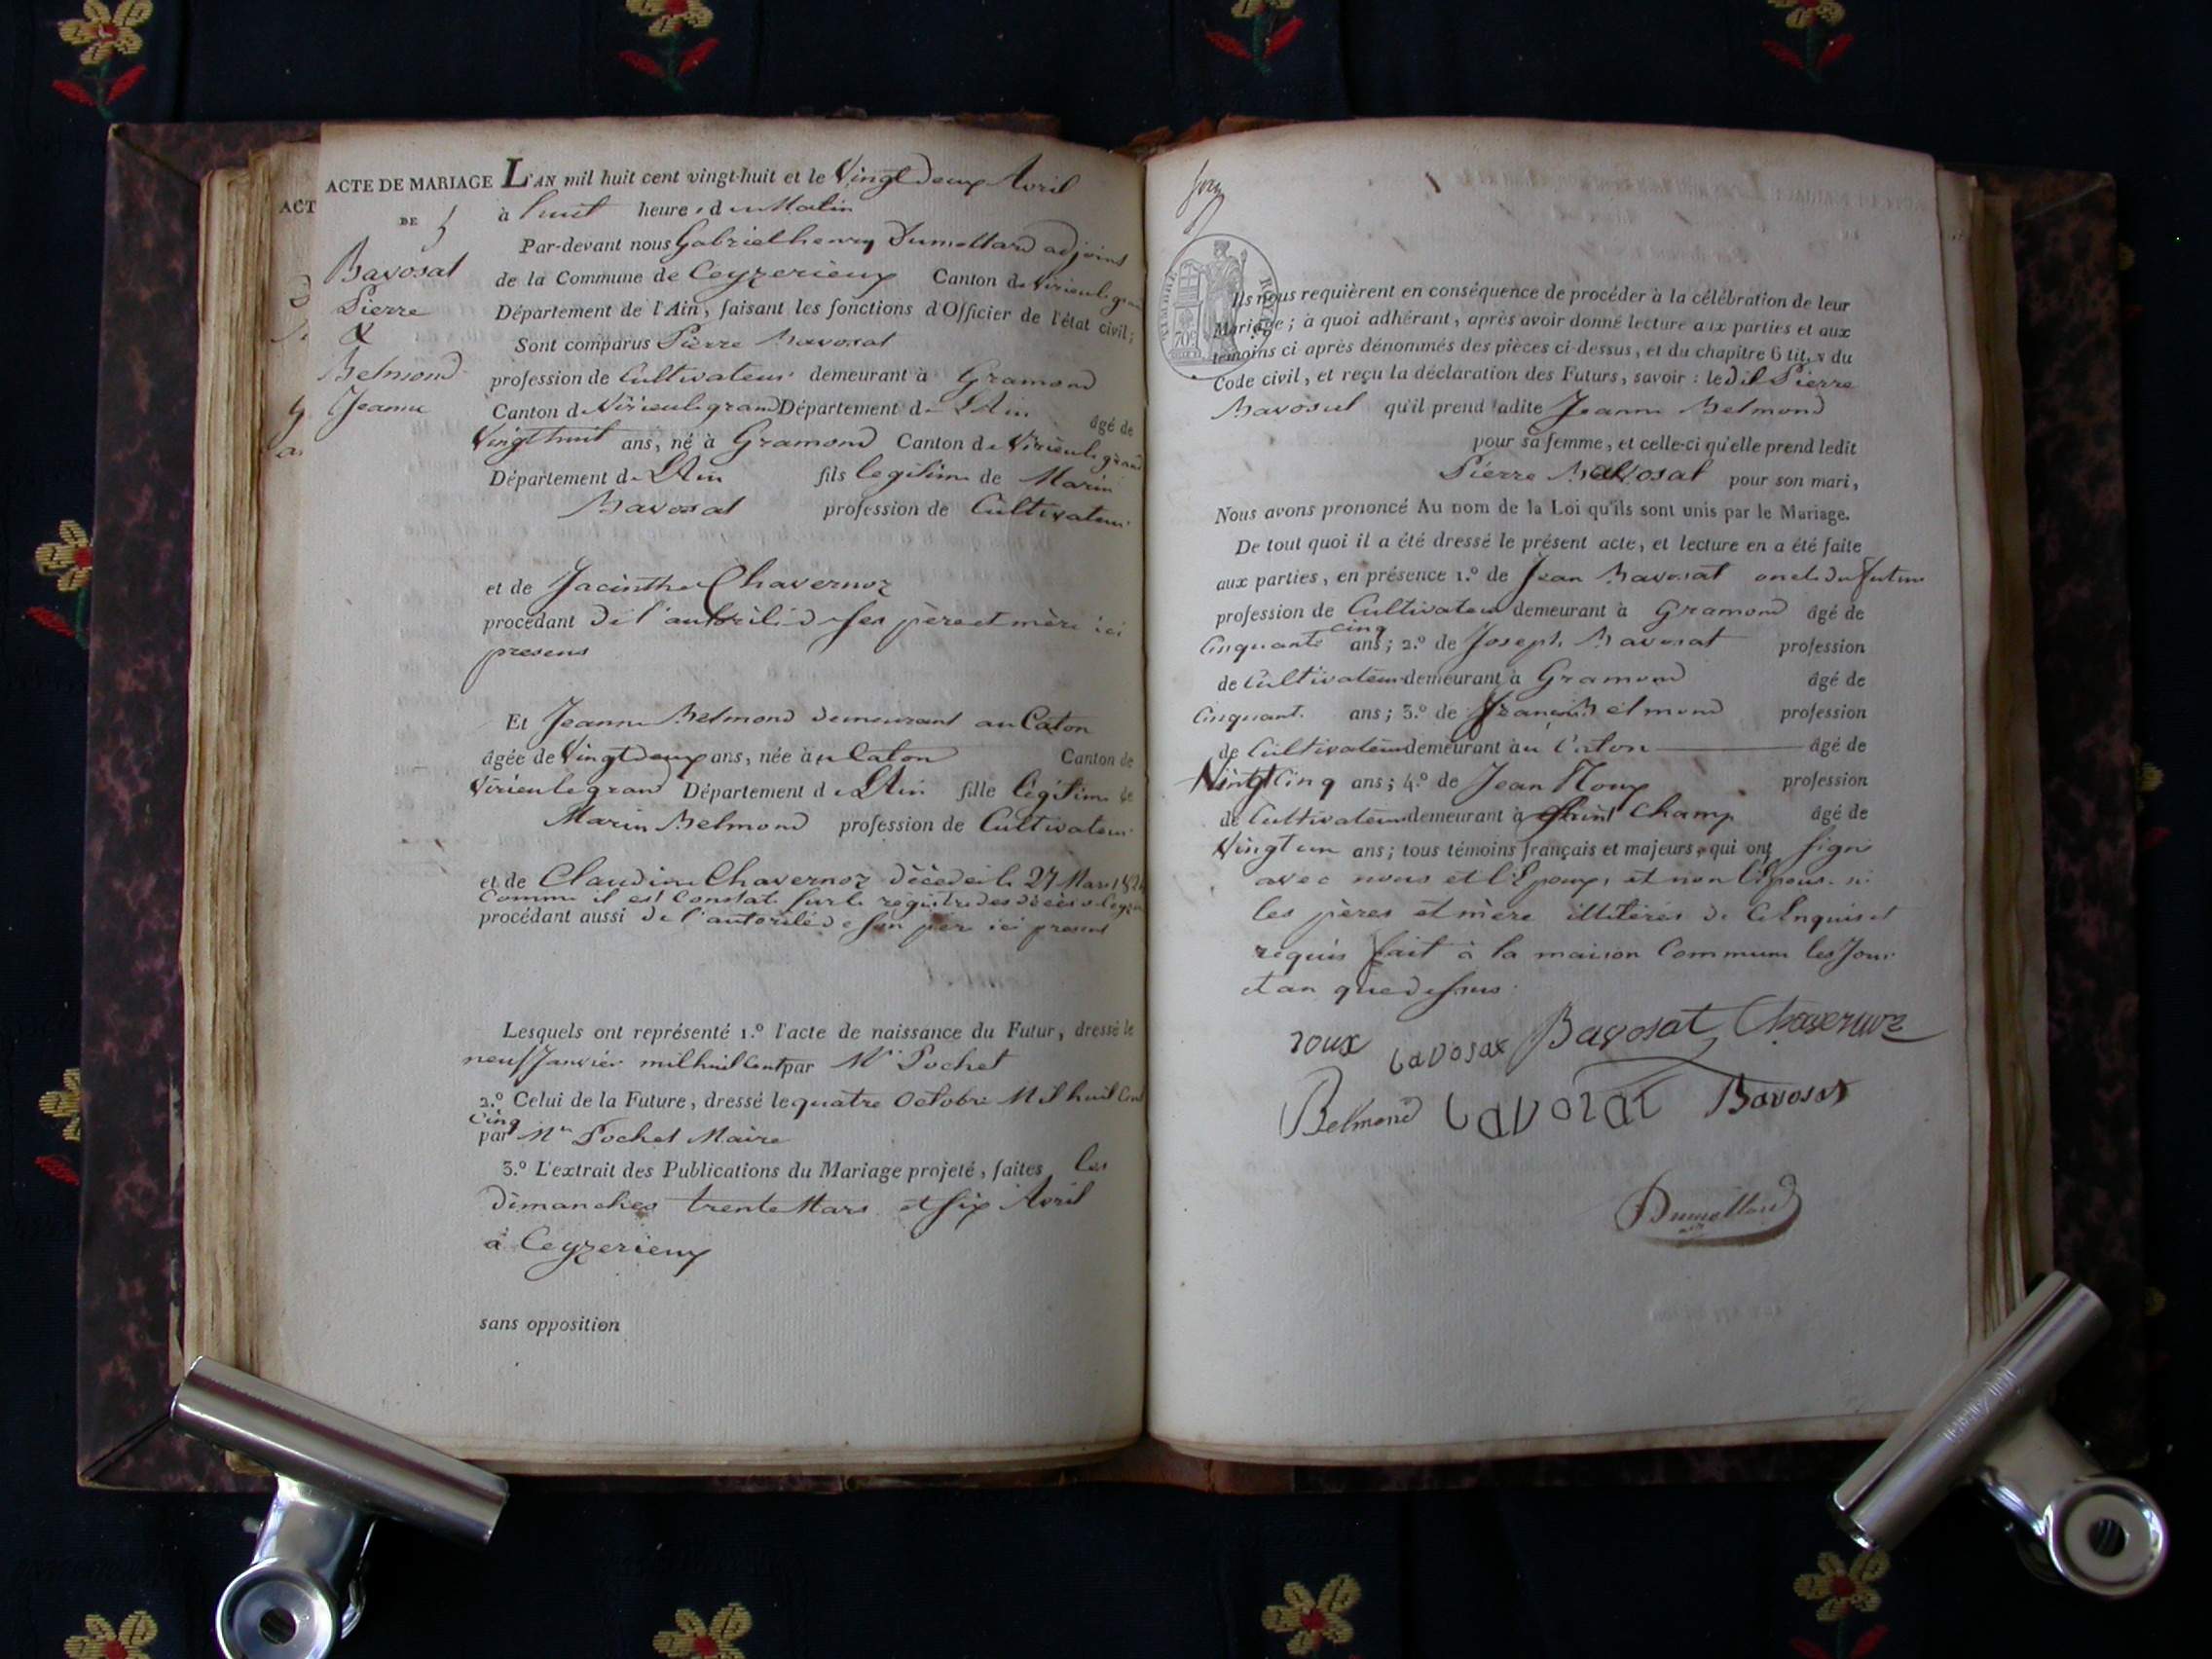 ACTE DE MARIAGE L'AN mil huit cent vingt-huit et le Vingt deux Avril
ACT
DE 5
à huit heures du Matin
Par-devant nous Gabriel henry Dumollard adjoint
Bavosat
de la Commune de Ceyzerieux Canton de Virieu le grand
Pierre
Département de l'Ain, faisant les fonctions d'Officier de l'état civil;
&
Sont comparus Pierre Bavosat
Belmond
profession de Cultivateur demeurant à Gramond
Jeanne
Canton de Virieu le grand Département de L'Ain âgé de
Vingt huit ans, né à Gramond Canton de Virieu le grand
Département de L'Ain fils legitime de Marin
Bavosat profession de Cultivateur
et de Jacinthe Chavernoz
procédant de l'autorité de ses père et mère ici
presens
Et Jeanne Belmond demeurant au Caton
âgée de Vingt deux ans, née à u Caton Canton de
Virieu le grand Département de L'Ain fille légitime de
Marin Belmond profession de Cultivateur
et de Claudine Chavernoz décédée le 27 Mars
Comme il est Constaté sur le régistre des décès
procédant aussi de l'autorité de son père ici present
Lesquels ont représenté 1.º l'acte de naissance du Futur, dressé le
neuf Janvier mil huit Cent par Mr Pochet
2.º Celui de la Future, dressé le quatre Octobre Mil huit Cent
Cinq
par Mr Pochet Maire
3.º L'extrait des Publications du Mariage projeté, faites les
dimanches trente Mars et six Avril
à Ceyzerieux
sans opposition
TIMBRE ROYAL
70c
Ils nous requièrent en conséquence de procéder à la célébration de leur
Mariage; à quoi adhérant, après avoir donné lecture aux parties et aux
témoins ci après dénommés des pièces ci-dessus, et du chapitre 6 tit. v du
Code civil, et reçu la déclaration des Futurs, savoir: le dit Pierre
Bavosat qu'il prend ladite Jeanne Belmond
pour sa femme, et celle-ci qu'elle prend ledit
Pierre Bavosat pour son mari,
Nous avons prononcé Au nom de la Loi qu'ils sont unis par le Mariage.
De tout quoi il a été dressé le présent acte, et lecture en a été faite
aux parties, en présence 1.º de Jean Bavosat oncle du futur
profession de Cultivateur demeurant à Gramond âgé de
cinq
Cinquante ans; 2.º de Joseph Bavosat profession
de Cultivateur demeurant à Gramond âgé de
Cinquante ans; 3.º de Francois Belmond profession
de Cultivateur demeurant à u Caton âgé de
Vingt Cinq ans; 4.º de Jean Roux profession
de Cultivateur demeurant à Saint Champ âgé de
Vingt un ans; tous témoins français et majeurs, qui ont signé
avec nous et l'Epoux, et non l'Epouse ni
les pères et mère illitérés de Ce Enquis et
requis fait à la maison Commune les Jour
et an que dessus
roux Bavosat Bavosat Chavernoz
Belmond Bavosat Bavosat
Dumollard